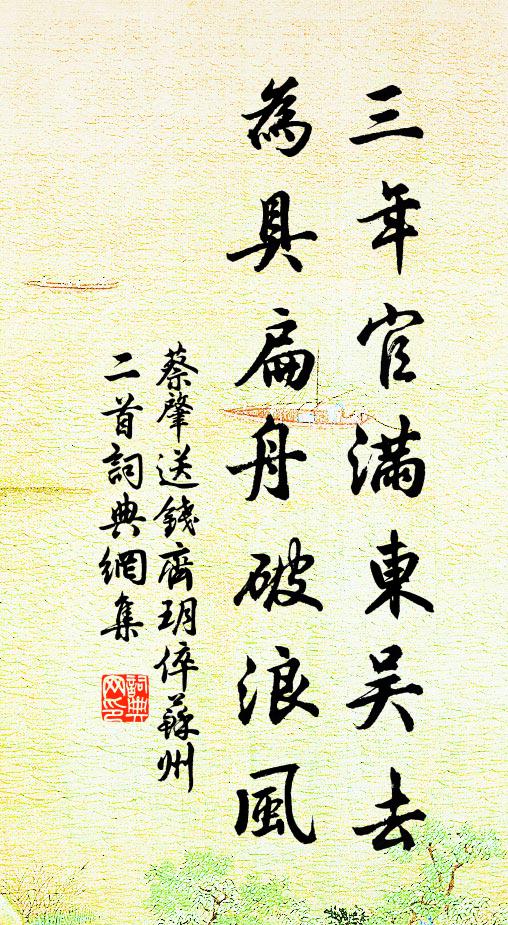 三年官滿東吴去
為具扁舟破浪風
蔡肇送錢齊玥倅蘇州
二首詞典網集
詞典网印